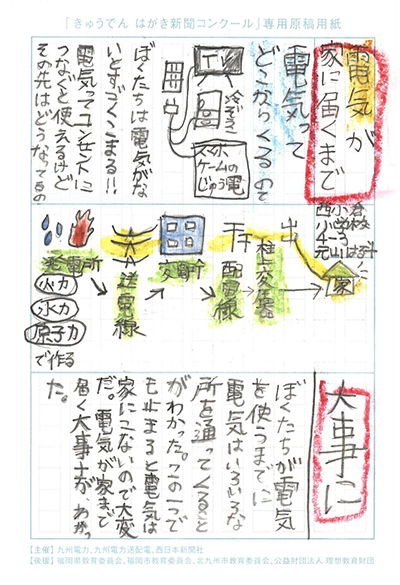 「きゅうでん はがき新聞コンクール」専用原稿用紙
電気が
家に届くまで
電気って
どこからくるの?
TV
冷ぞうこ
スマホ
ゲームの
じゅう電
ぼくたちは電気がな
いとすごくこまる!!
電気ってコンセントに
つなぐと使えるけど
その先はどうなってるの
発電所
火力
水力
原子力
で作る
送電線
変電所
配電線
柱上変圧器
家
大事に
ぼくたちが電気
を使うまでに
電気はいろいろな
所を通ってくると
がわかった。この一つで
も止まると電気は
家にこないので大変
だ。電気が家まで
届く大事さが、わかっ
た。
【主催】九州電力、九州電力送配電、西日本新聞社
【後援】福岡県教育委員会、福岡市教育委員会、北九州市教育委員会、公益財団法人 理想教育財団